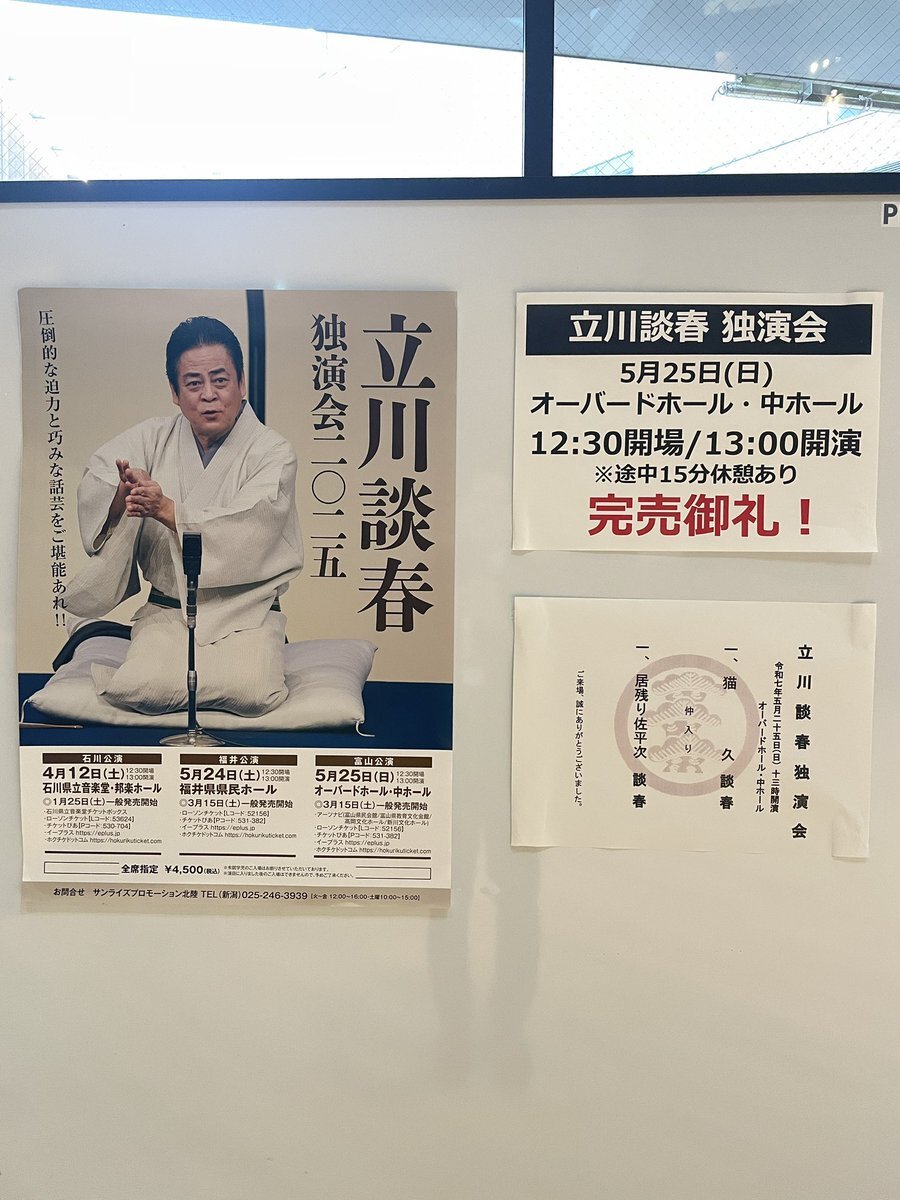 立川談春
独演会二〇二五
圧倒的な迫力と巧みな話芸をご堪能あれ!!
石川公演
4月12日(土) 12:30開場 13:00開演
石川県立音楽堂・邦楽ホール
◎1月25日(土)一般発売開始
・石川県立音楽堂チケットボックス
・ローソンチケット[Lコード:53624]
・チケットぴあ[Pコード:530-704]
・イープラス https://eplus.jp
・ホクチケドットコム https://hokurikuticket.com
福井公演
5月24日(土) 12:30開場 13:00開演
福井県県民ホール
◎3月15日(土)一般発売開始
・ローソンチケット[Lコード:52156]
・チケットぴあ[Pコード:531-382]
・イープラス https://eplus.jp
・ホクチケドットコム https://hokurikuticket.com
富山公演
5月25日(日) 12:30開場 13:00開演
オーバードホール・中ホール
◎3月15日(土)一般発売開始
・アーツナビ(富山県民会館/富山県教育文化会館/
高岡文化ホール/新川文化ホール)
・ローソンチケット[Lコード:52156]
・チケットぴあ[Pコード:531-382]
・イープラス https://eplus.jp
・ホクチケドットコム https://hokurikuticket.com
全席指定 ¥4,500(税込)
※未就学児のご入場はお断りさせていただいております。
※演目に入りました後のご入場はできませんので、予めご了承ください。
お問合せ サンライズプロモーション北陸 TEL(新潟)025-246-3939 [火〜金 12:00〜16:00・土曜10:00〜15:00]
P
立川談春 独演会
5月25日(日)
オーバードホール・中ホール
12:30開場/13:00開演
※途中15分休憩あり
完売御礼！
立川談春独演会
令和七年五月二十五日(日)十三時開演
オーバードホール・中ホール
一、猫久 談春
仲入り
一、居残り佐平次 談春
ご来場、誠にありがとうございました。